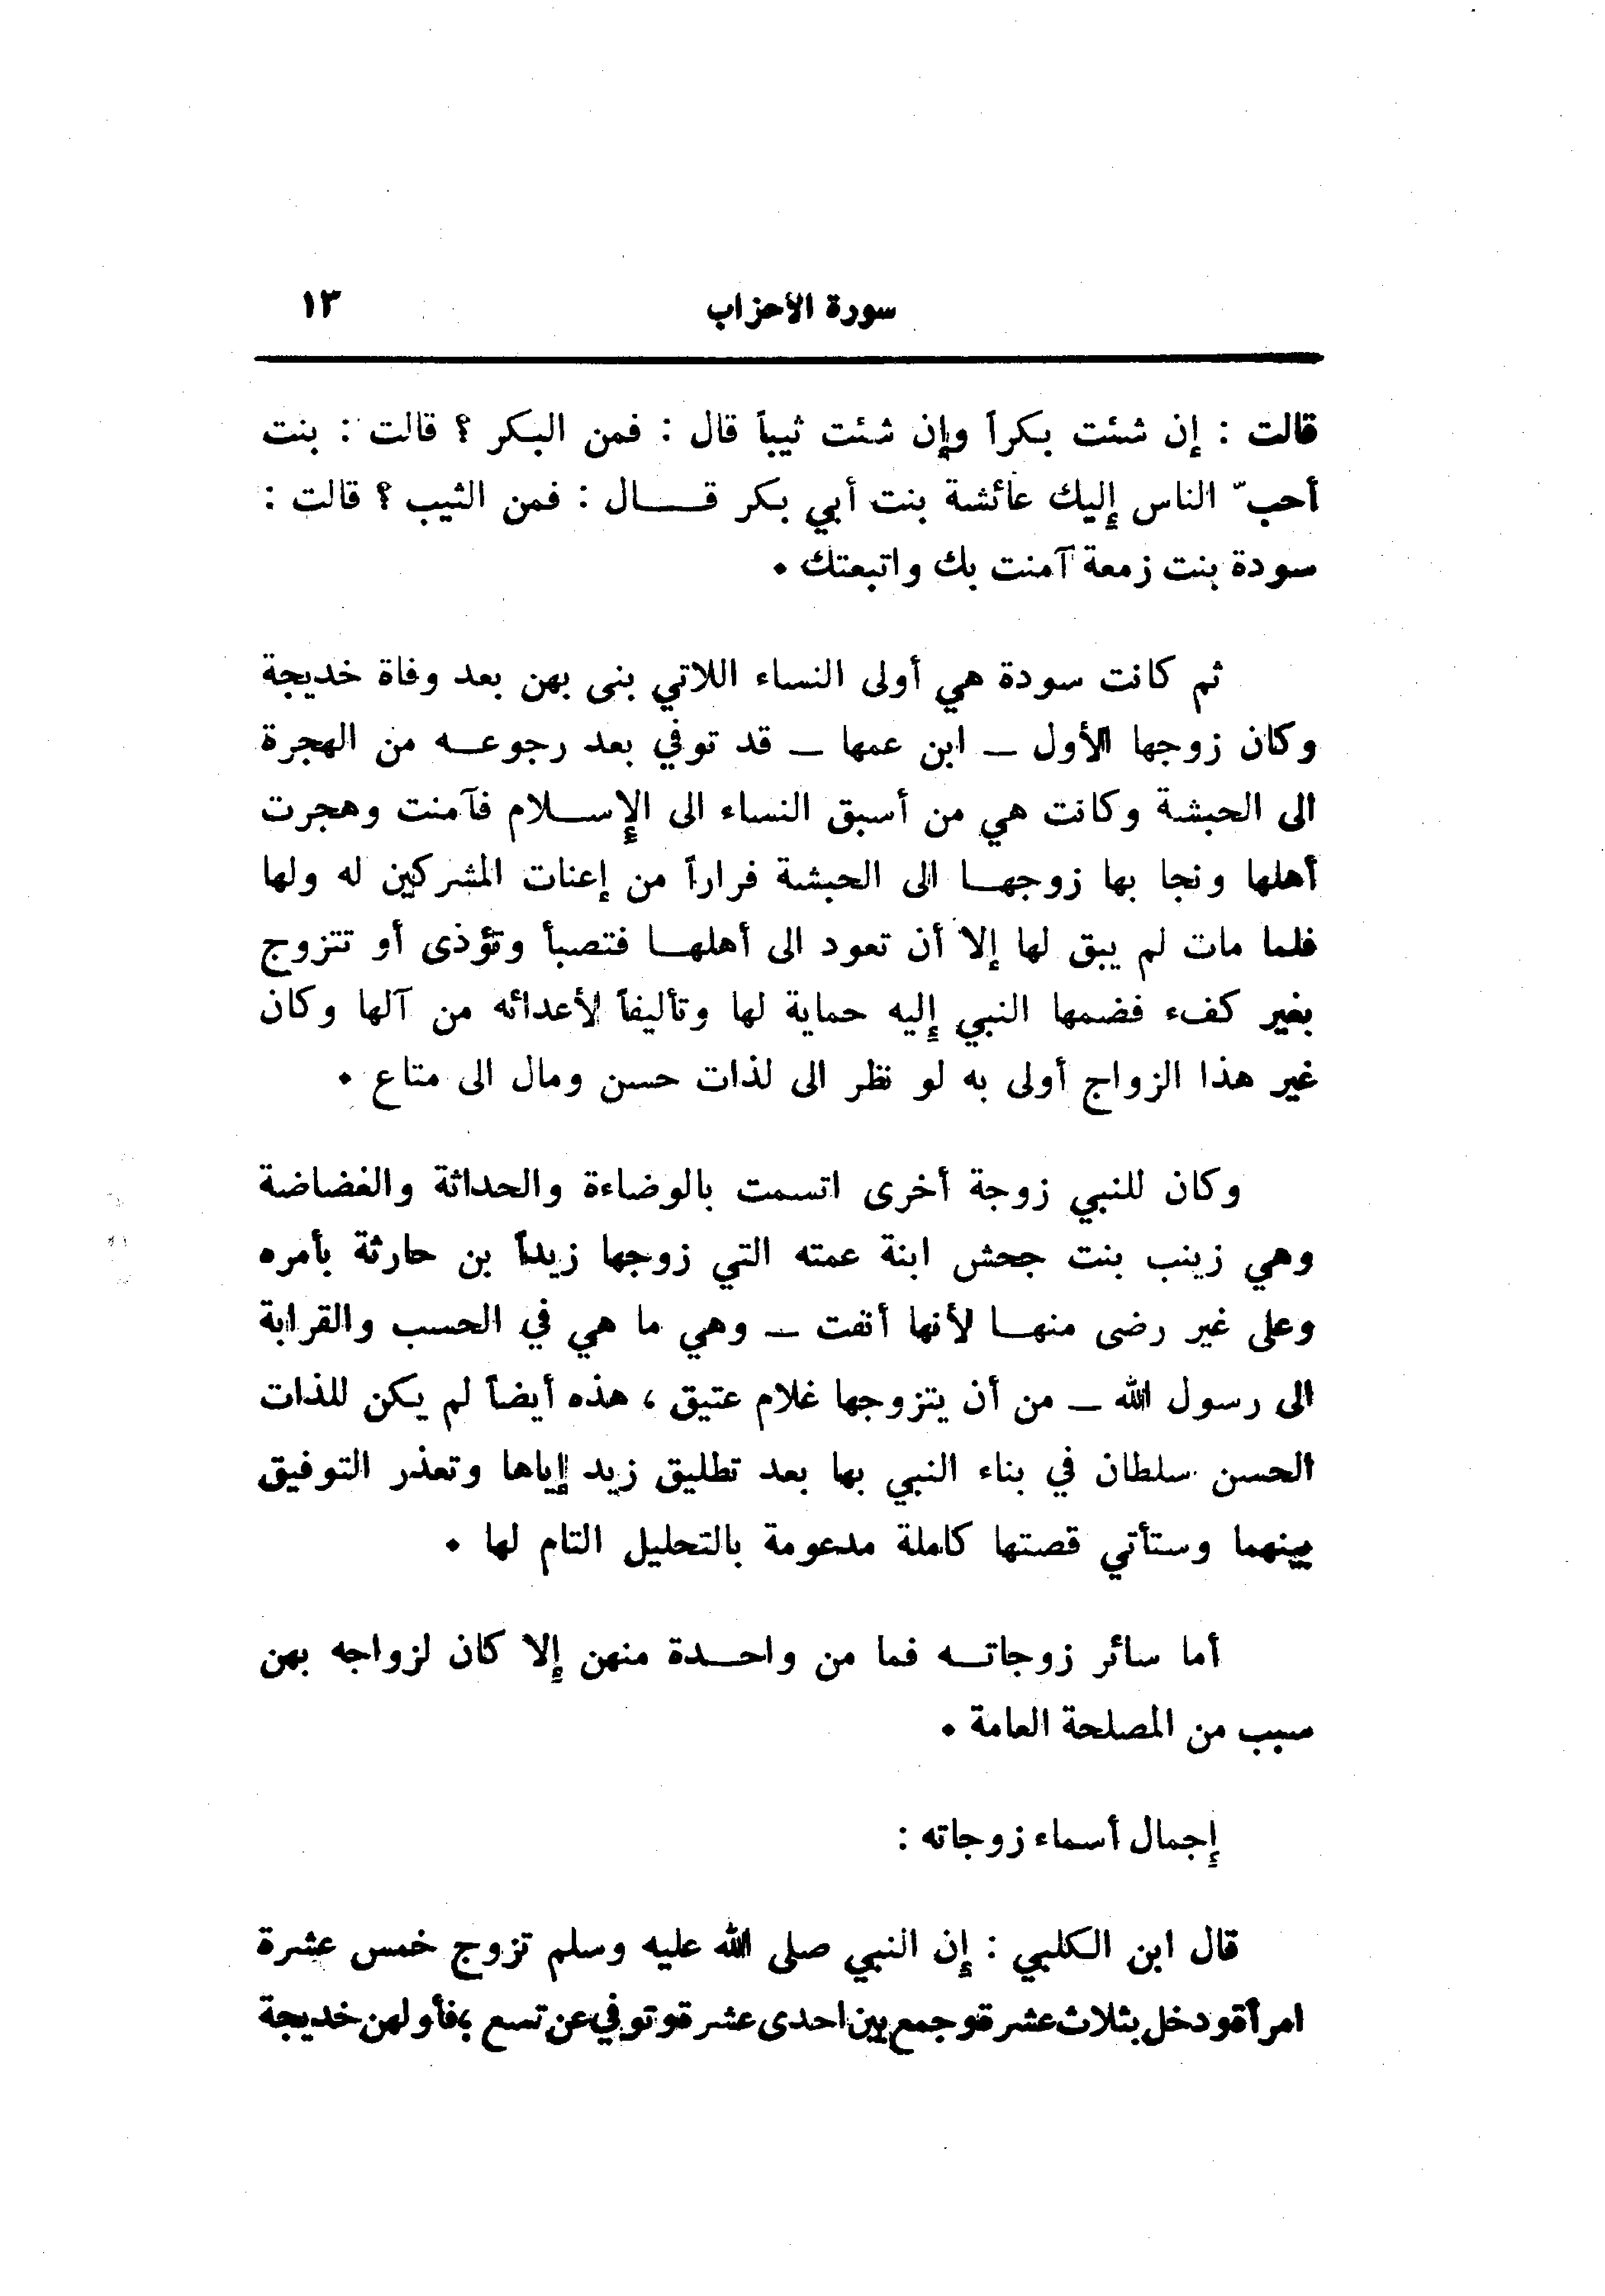 سورة الأحزاب ١٣
قالت : إن شئت بكراً وإن شئت ثيباً قال : فمن البكر ؟ قالت : بنت
أحبّ الناس إليك عائشة بنت أبي بكر قــال : فمن الثيب ؟ قالت :
سودة بنت زمعة آمنت بك واتبعتك •
ثم كانت سودة هي أولى النساء اللاتي بنى بهن بعد وفاة خديجة
وكان زوجها الأول – ابن عمها – قد توفي بعد رجوعــه من الهجرة
الى الحبشة وكانت هي من أسبق النساء الى الإســلام فآمنت وهجرت
أهلها ونجا بها زوجهــا الى الحبشة فراراً من إعنات المشركين له ولها
فلما مات لم يبق لها إلا أن تعود الى أهلهــا فتصبأ وتؤذى أو تتزوج
بغير كفء فضمها النبي إليه حماية لها وتأليفاً لأعدائه من آلها وكان
غير هذا الزواج أولى به لو نظر الى لذات حسن ومال الى متاع •
وكان للنبي زوجة أخرى اتسمت بالوضاءة والحداثة والغضاضة
وهي زينب بنت جحش ابنة عمته التي زوجها زيداً بن حارثة بأمره
وعلى غير رضى منهــا لأنها أنفت – وهي ما هي في الحسب والقرابة
الى رسول الله – من أن يتزوجها غلام عتيق ، هذه أيضاً لم يكن للذات
الحسن سلطان في بناء النبي بها بعد تطليق زيد إياها وتعذر التوفيق
بينهما وستأتي قصتها كاملة مدعومة بالتحليل التام لها •
أما سائر زوجاتــه فما من واحــدة منهن إلا كان لزواجه بهن
سبب من المصلحة العامة •
إجمال أسماء زوجاته :
قال ابن الكلبي : إن النبي صلى الله عليه وسلم تزوج خمس عشرة
امرأة ودخل بثلاث عشرة وجمع بين احدى عشرة وتوفي عن تسع ، فأولهن خديجة